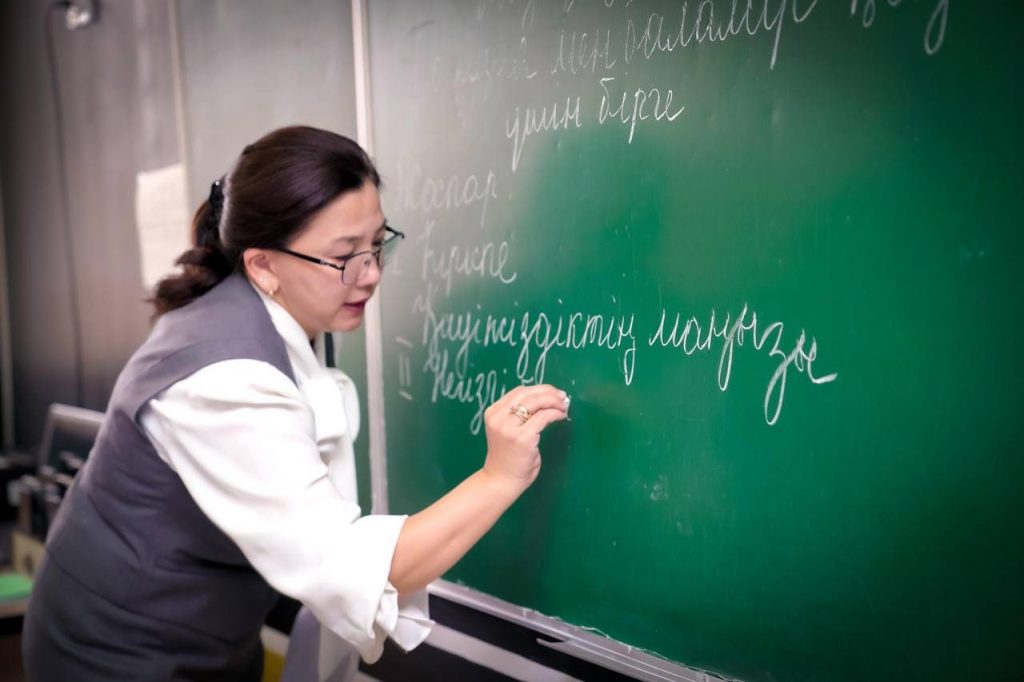 мен балалар
үшін бірге
Жоспар:
I Кіріспе
Қауіпсіздіктің маңызы
II Негізгі